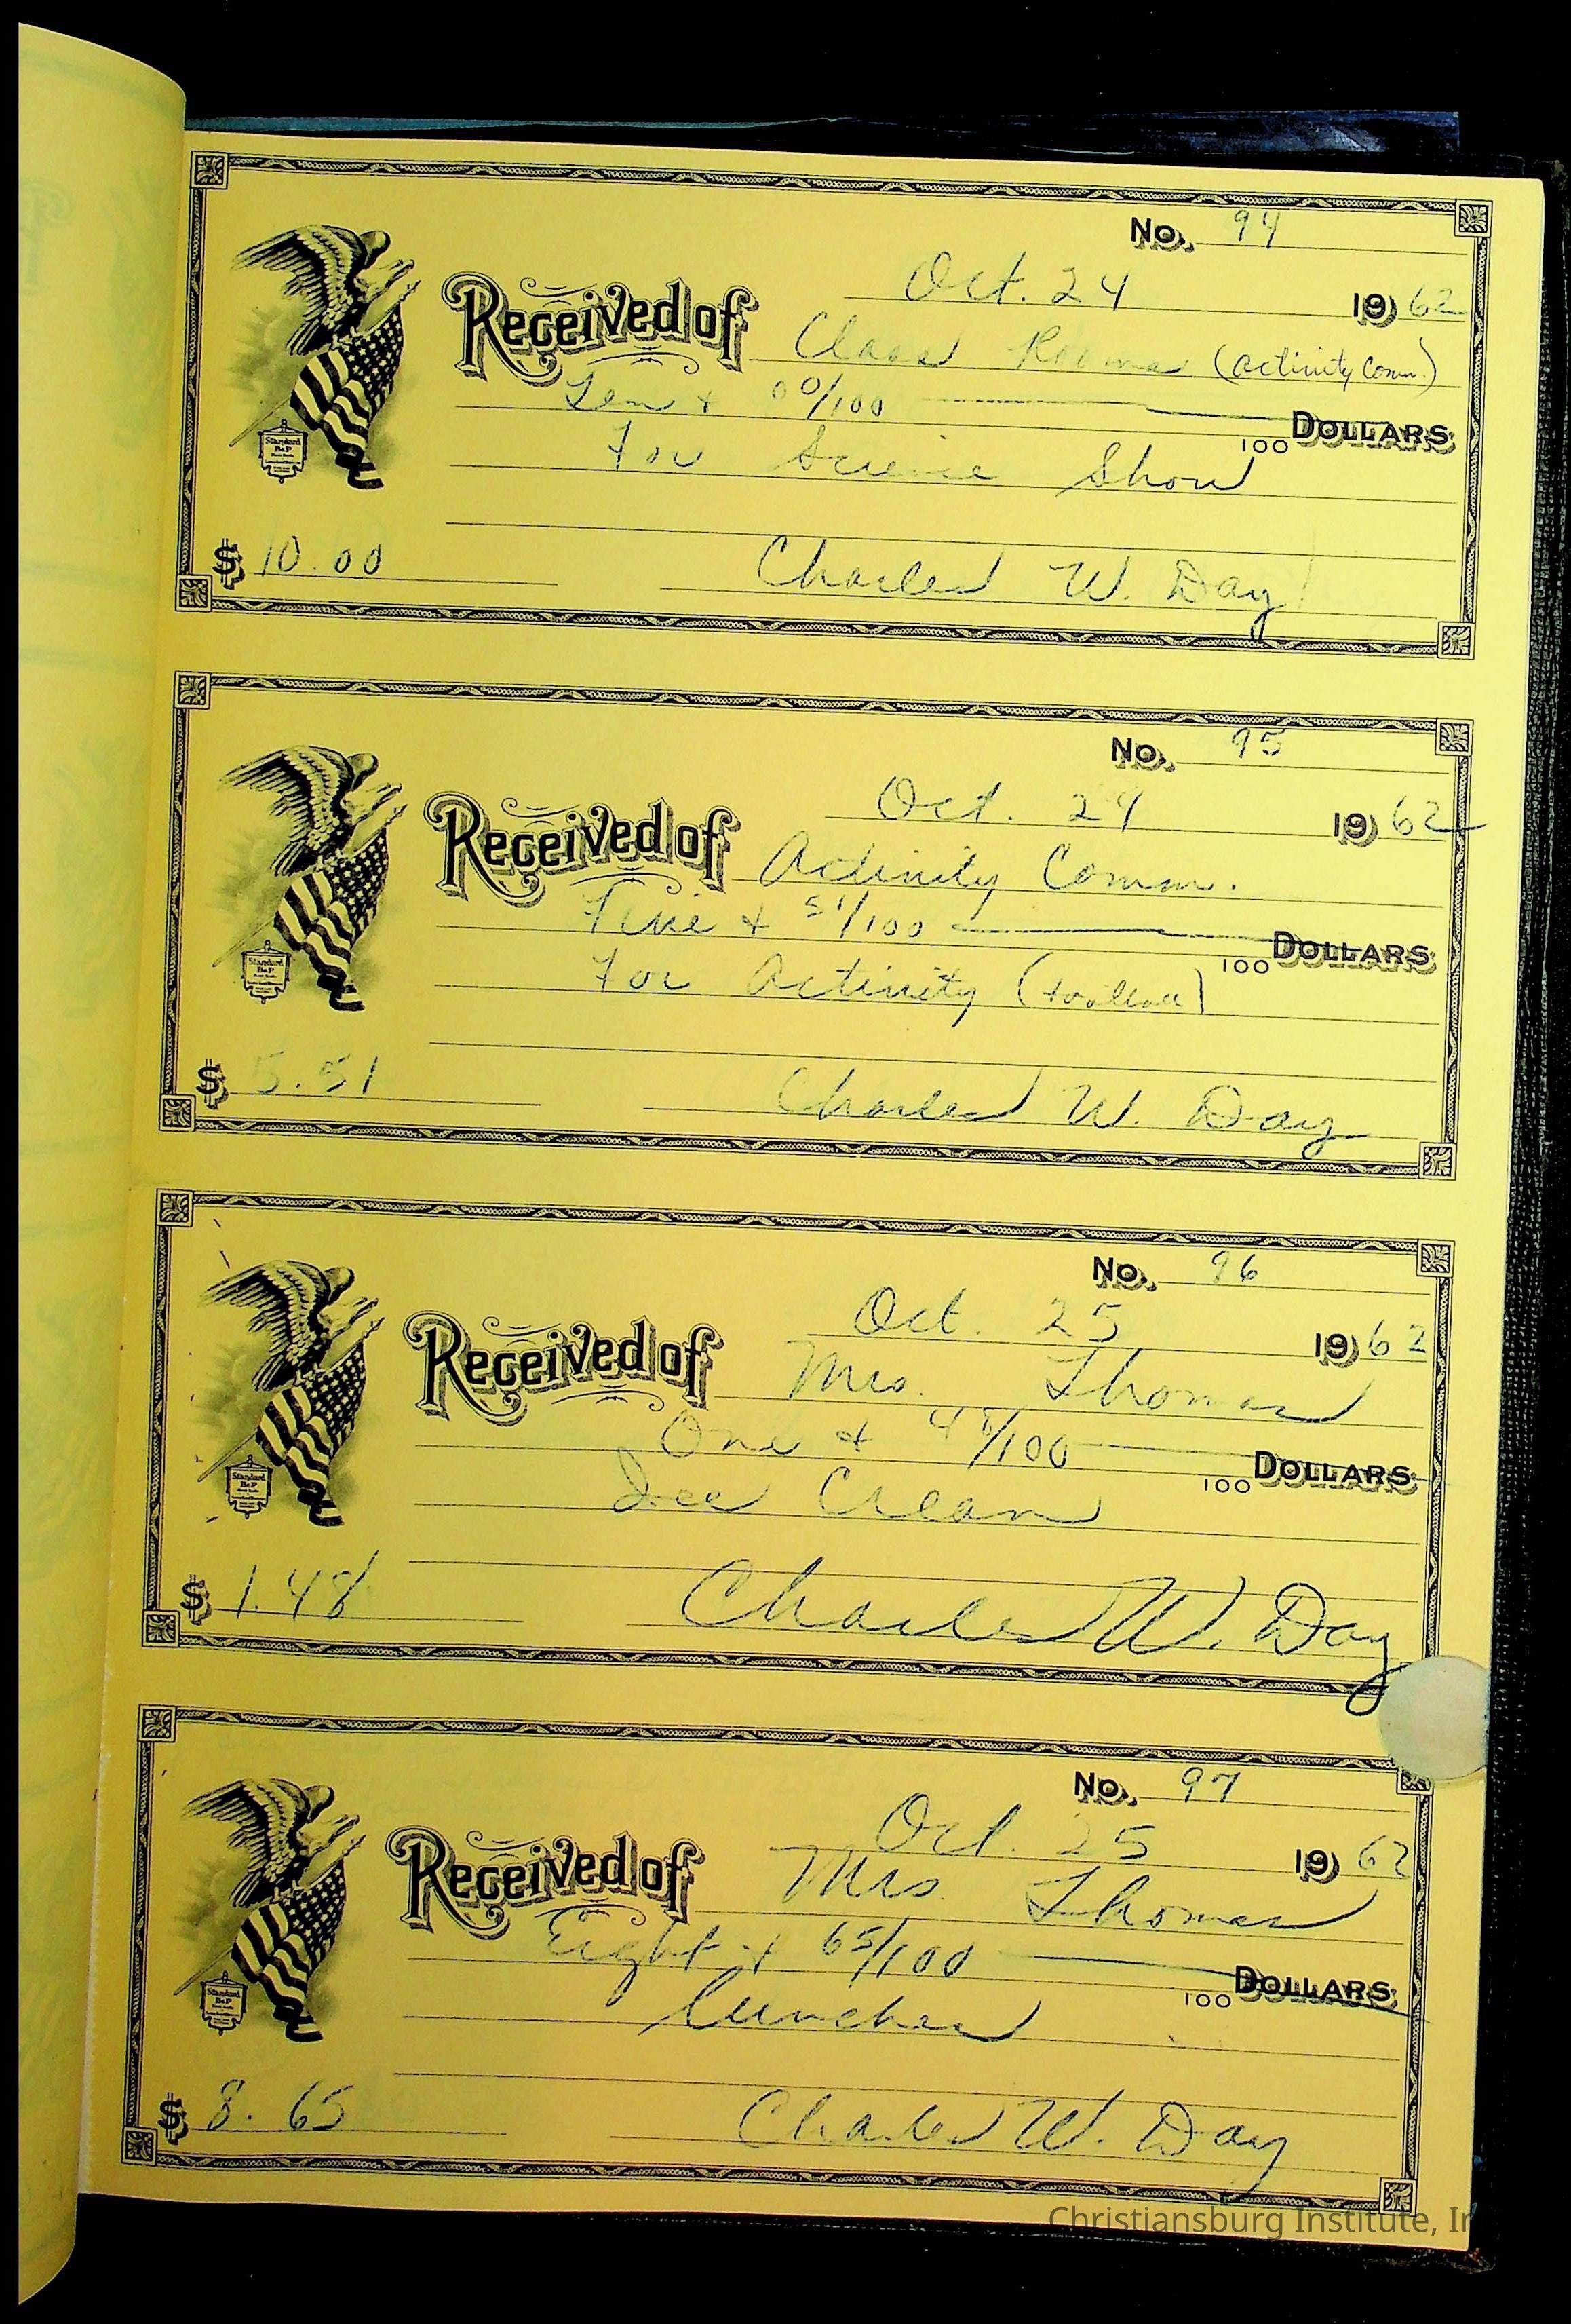 No. 94
Oct. 24 1962
Received of Class Rooms (Activity Comm.)
Ten & 00/100 100 DOLLARS
For Science Show
$ 10.00 Charles W. Day
Standard B&P
No. 95
Oct. 24 1962
Received of Activity Comm.
Five & 51/100 100 DOLLARS
For Activity (football)
$ 5.51 Charles W. Day
Standard B&P
No. 96
Oct. 25 1962
Received of Mrs. Thomas
One & 48/100 100 DOLLARS
Ice Cream
$ 1.48 Charles W. Day
Standard B&P
No. 97
Oct. 25 1962
Received of Mrs. Thomas
Eight & 65/100 100 DOLLARS
Lunches
$ 8.65 Charles W. Day
Standard B&P
Christiansburg Institute, In